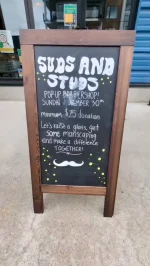 SUDS AND
STUDS
POP UP BARBERSHOP!
SUNDAY NOVEMBER 30th
minimum $25 donation
Let's raise a glass, get
some manscaping
and make a difference
TOGETHER!